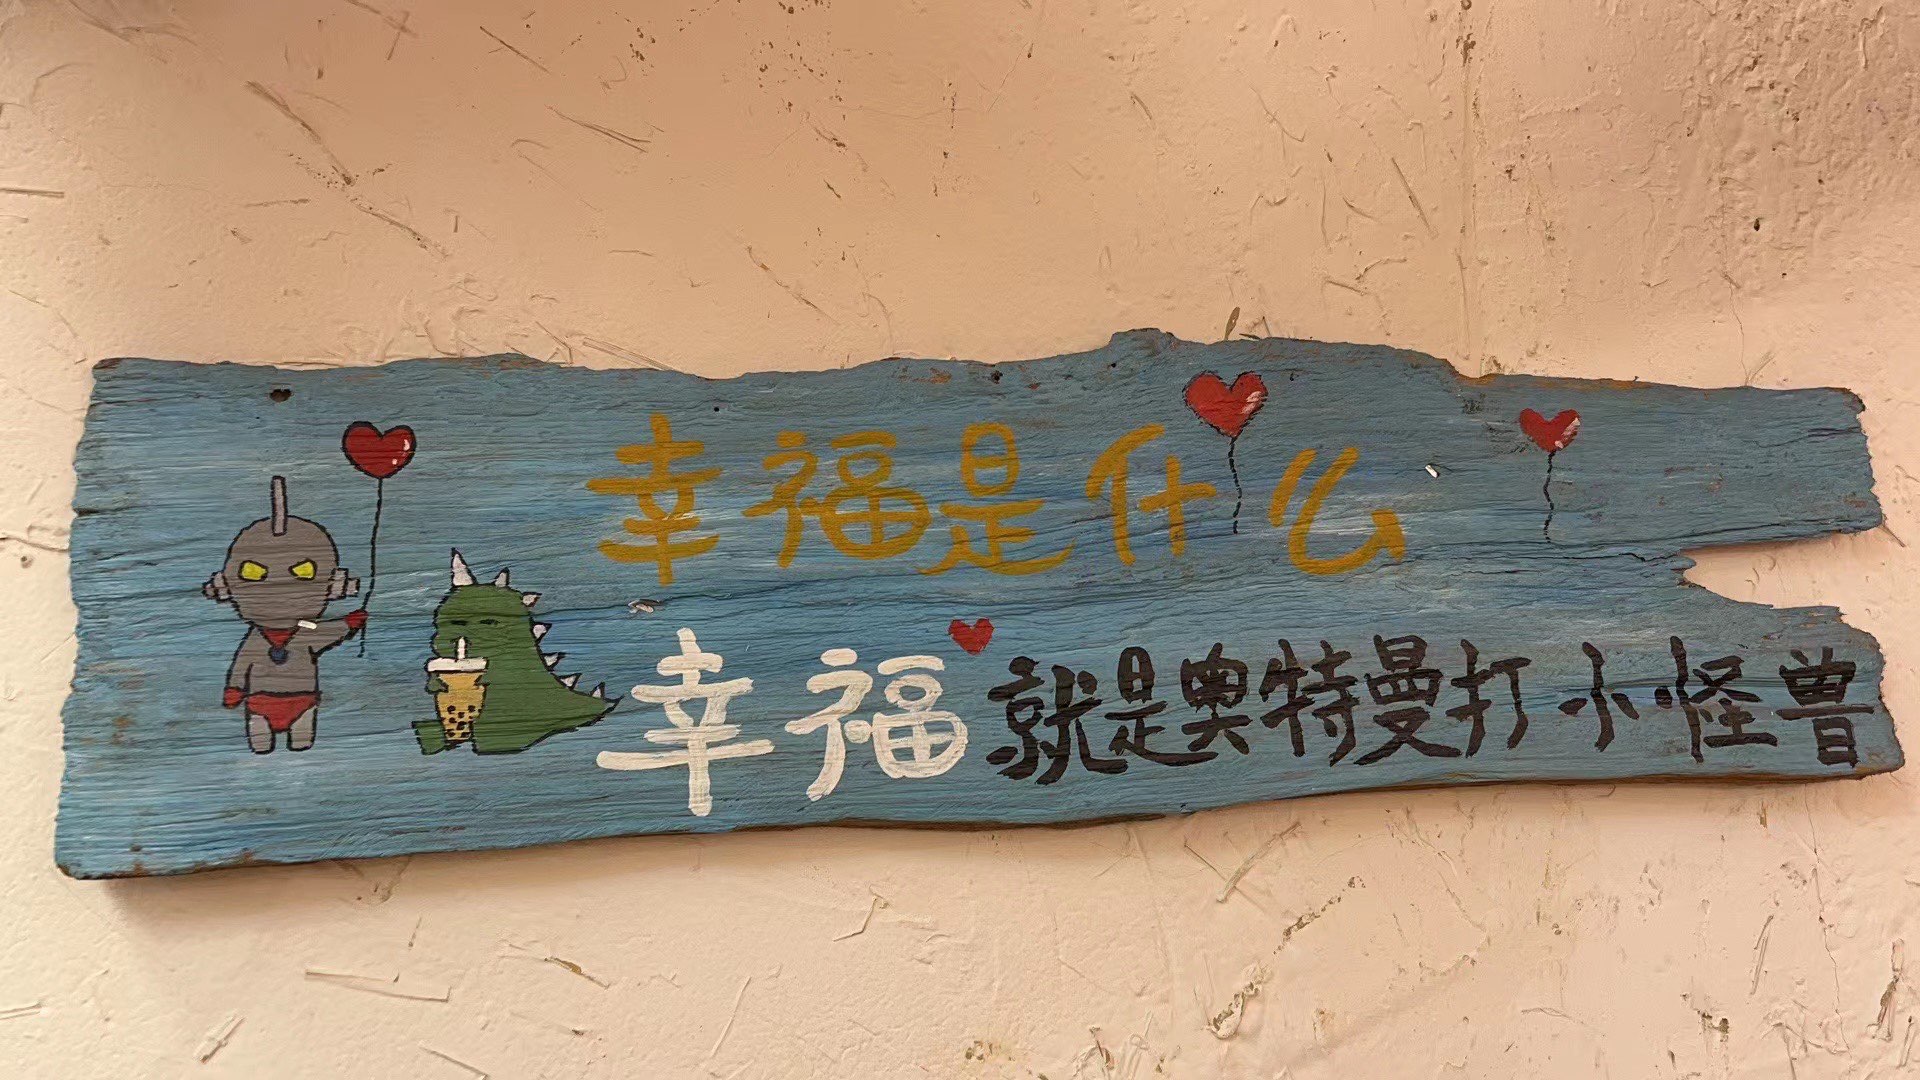 幸福是什么
幸福就是奥特曼打小怪兽